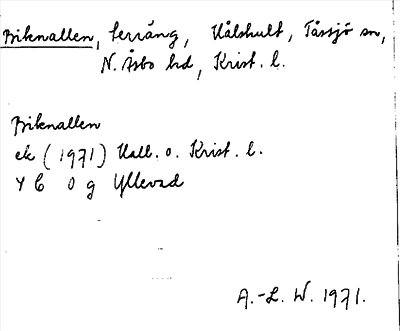 Biknallen, terräng, Uålshult, Tåssjö sn,
N. Åsbo hd, Krist. l.
Biknallen
ek (1971) Hall. o. Krist. l.
4 C 0 g Yllevad
A.-L. W. 1971.